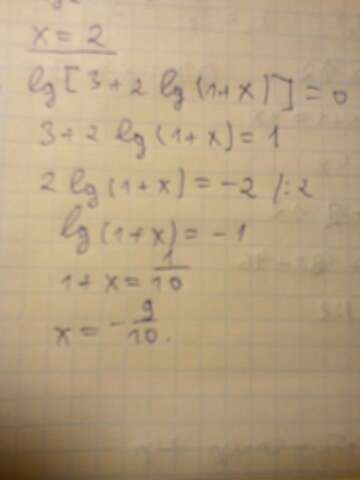 x = 2
lg [3 + 2 lg (1+x)] = 0
3 + 2 lg (1+x) = 1
2 lg (1+x) = -2 /:2
lg (1+x) = -1
1 + x = 1/10
x = - 9/10.